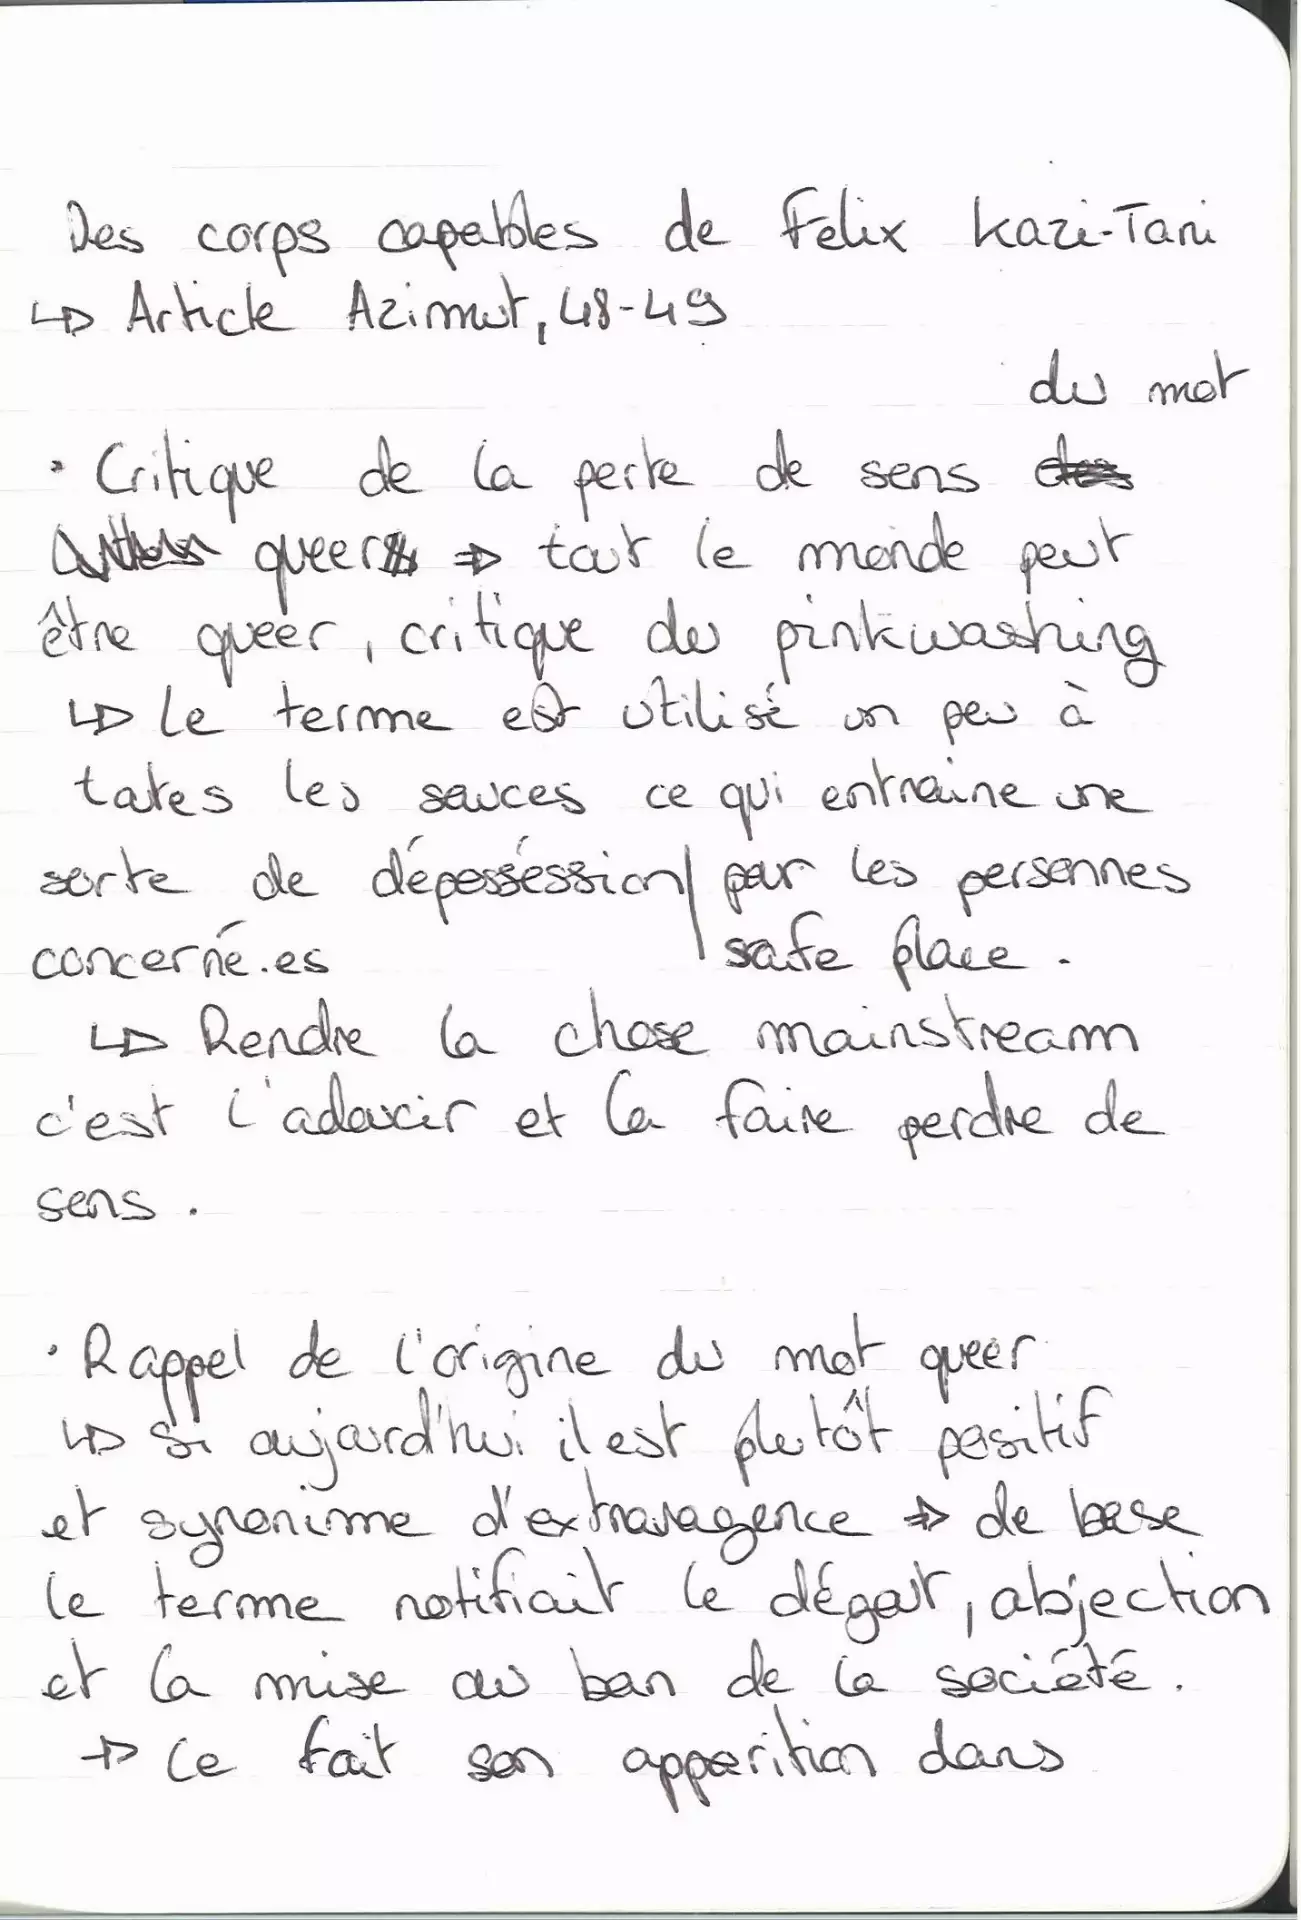 Des corps capables de Felix Kazi-Tani
↳ Article Azimut, 48-49
du mot
· Critique de la perte de sens
queer ⇒ tout le monde peut
être queer, critique du pinkwashing
↳ le terme est utilisé un peu à
toutes les sauces ce qui entraine une
sorte de dépossession / pour les personnes
concerné.es / safe place.
↳ Rendre la chose mainstream
c'est l'adoucir et la faire perdre de
sens.
· Rappel de l'origine du mot queer
↳ Si aujourd'hui il est plutôt positif
et synonime d'extravagence ⇒ de base
le terme notifiait le dégout, abjection
et la mise au ban de la société.
→ le fait son apparition dans